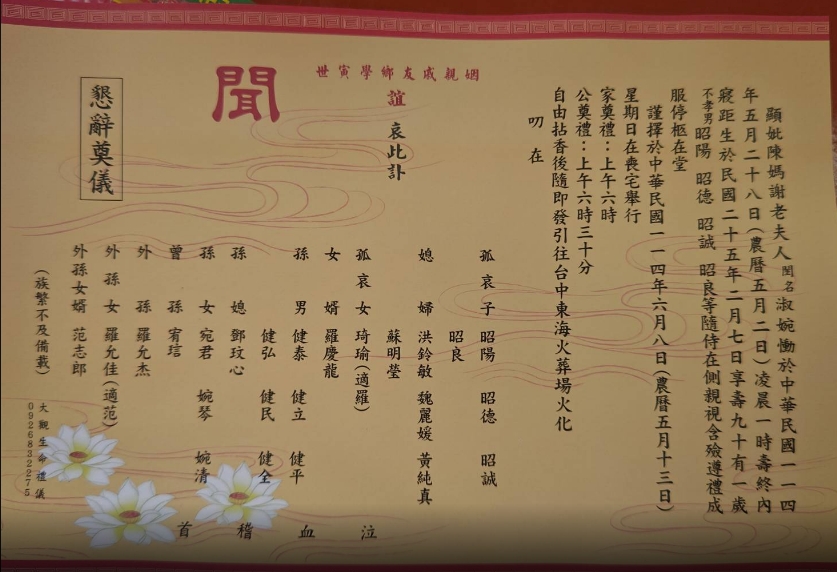 顯妣陳媽謝老夫人閨名淑婉慟於中華民國一一四
年五月二十八日(農曆五月二日)凌晨一時壽終內
寢距生於民國二十五年二月七日享壽九十有一歲
不孝男昭陽 昭德 昭誠 昭良等隨侍在側親視含殮遵禮成
服停柩在堂
謹擇於中華民國一一四年六月八日(農曆五月十三日)
星期日在喪宅舉行
家奠禮：上午六時
公奠禮：上午六時三十分
自由拈香後隨即發引往台中東海火葬場火化
叨在
世寅學鄉友戚親姻
誼
哀此訃
聞
懇辭奠儀
孤哀子 昭陽 昭德 昭誠
昭良
媳婦 洪鈴敏 魏麗媛 黃純真
蘇明瑩
孤哀女 琦瑜(適羅)
女婿 羅慶龍
孫男 健泰 健立 健平
健弘 健民 健全
孫媳 鄧玟心
孫女 宛君 婉琴 婉清
曾孫 宥
外孫 羅允杰
外孫女 羅允佳(適范)
外孫女婿 范志郎
(族繁不及備載)
泣血稽首
大觀生命禮儀
0926832275